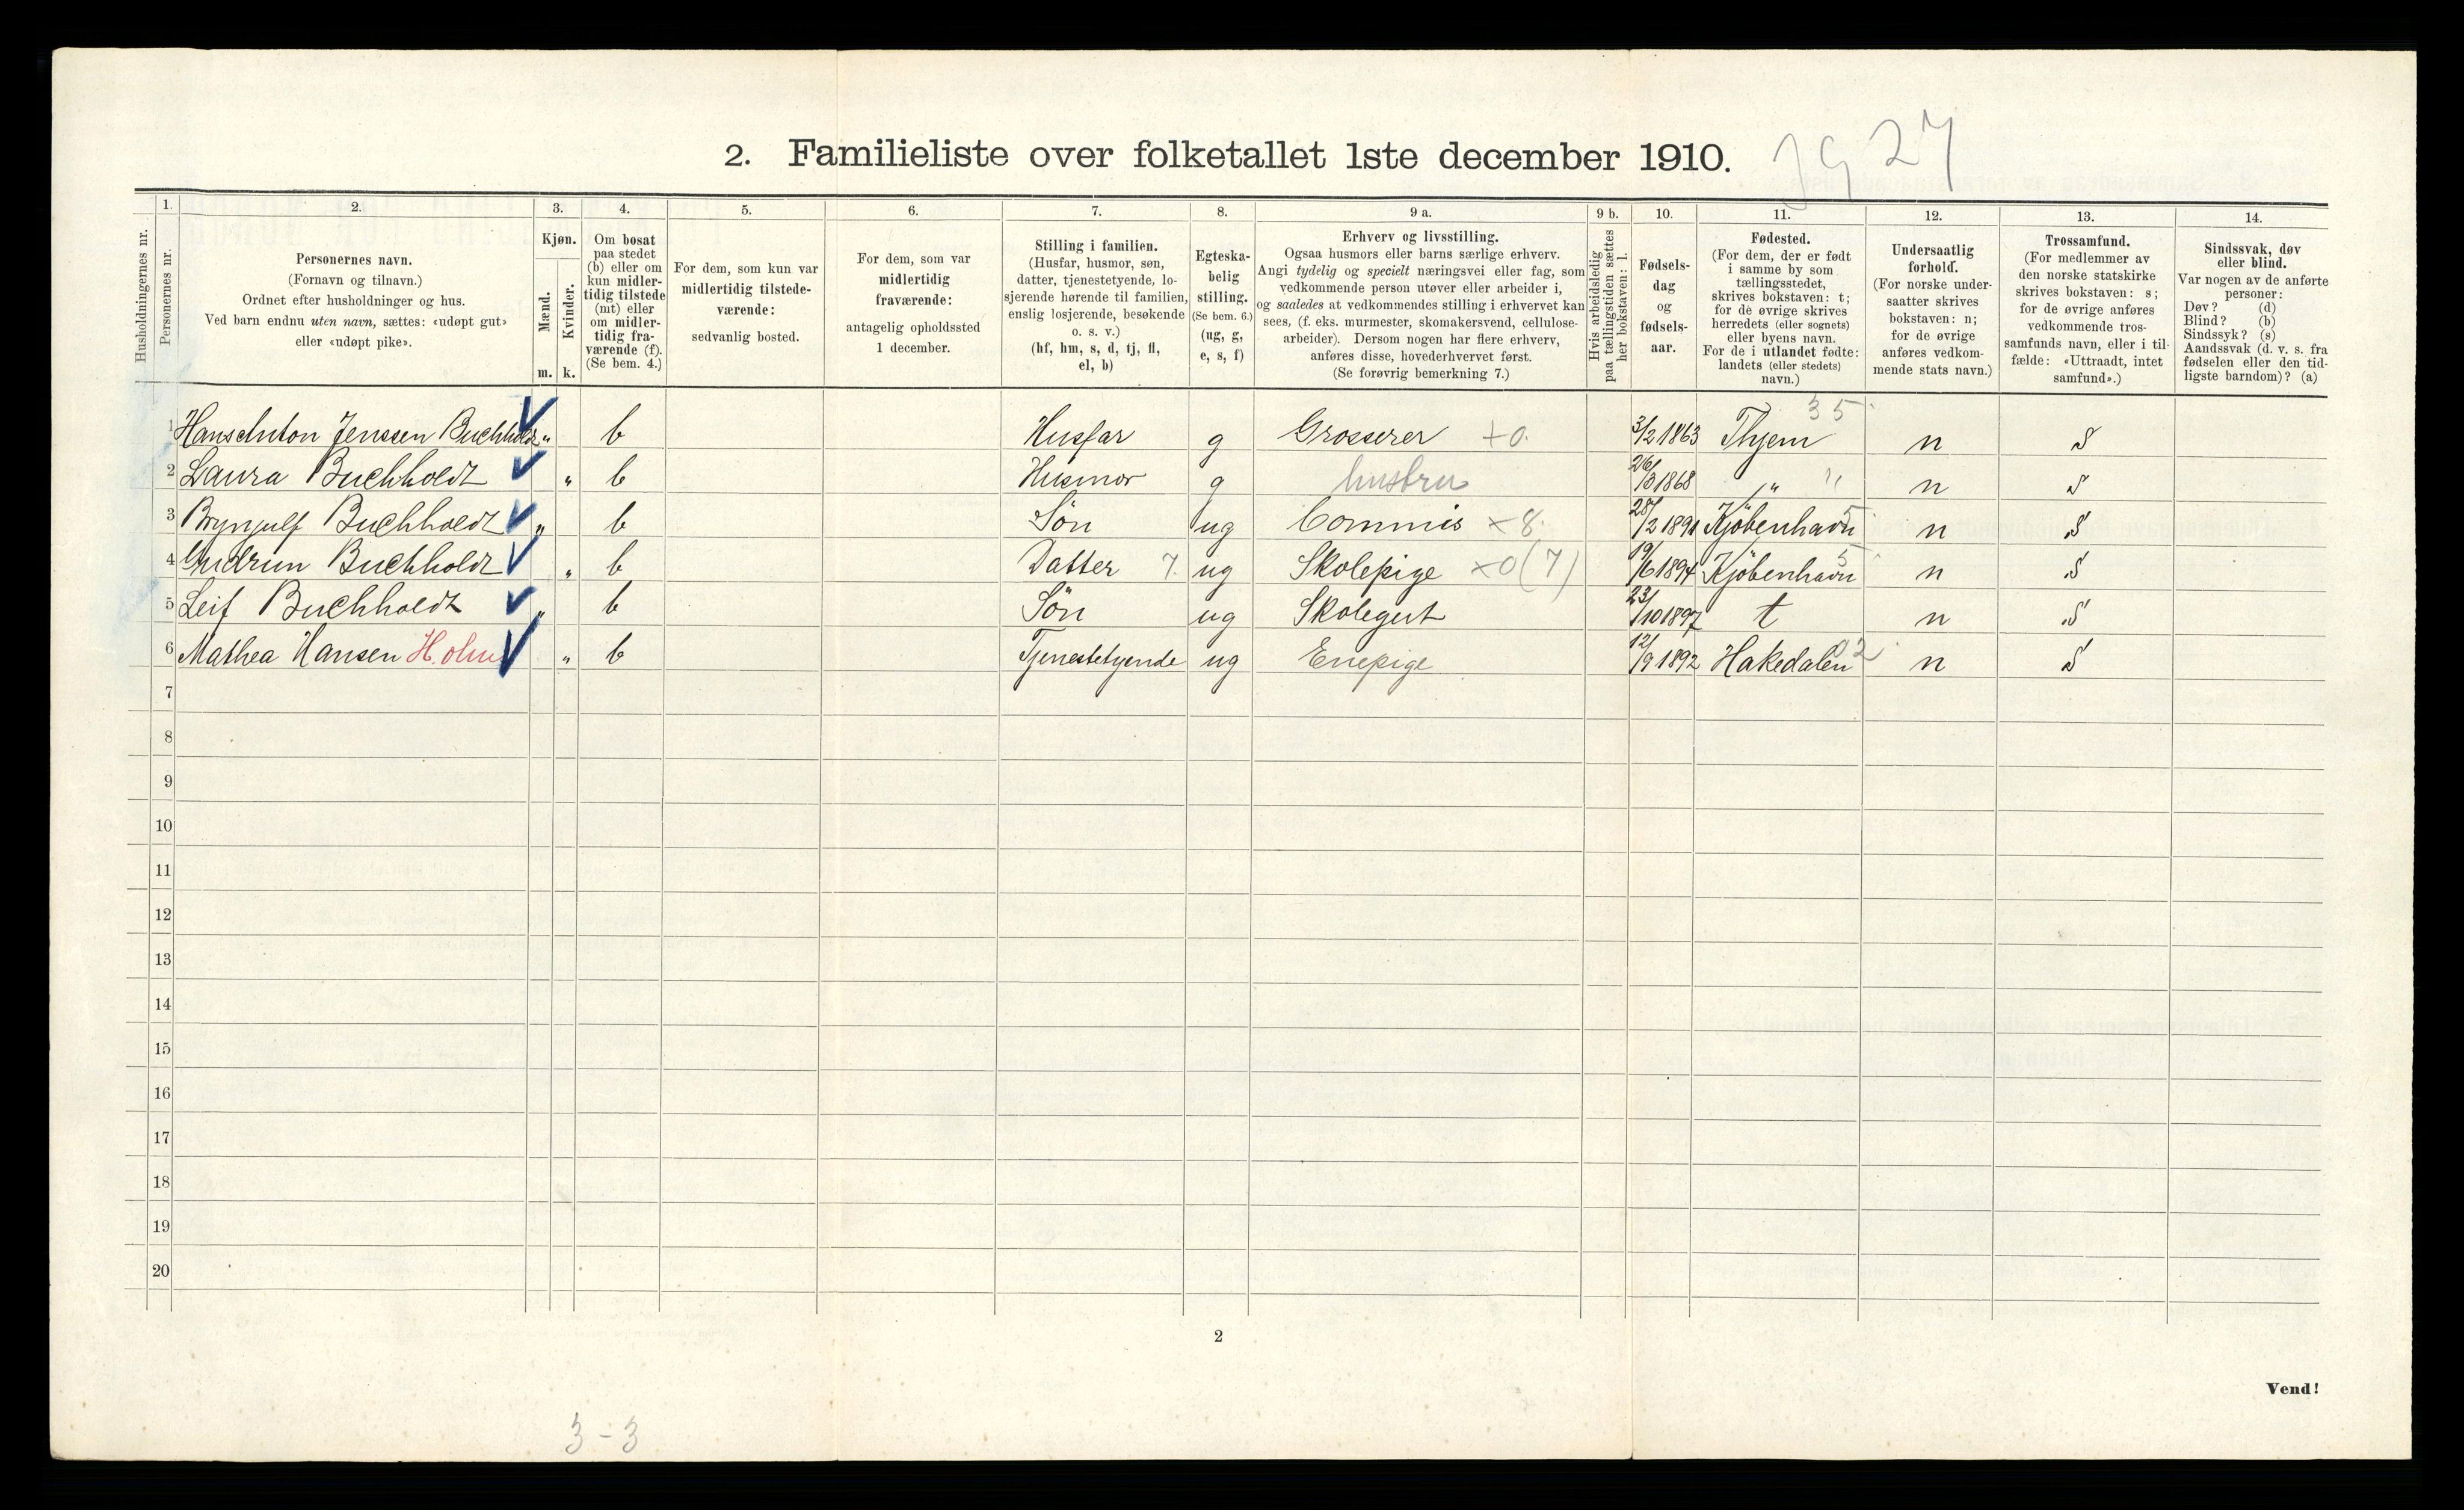 2. Familieliste over folketallet 1ste december 1910. Jg 27
Husholdningernes nr.
1. Personernes nr.
2. Personernes navn.
(Fornavn og tilnavn.)
Ordnet efter husholdninger og hus.
Ved barn endnu uten navn, sættes: «udøpt gut»
eller «udøpt pike».
3. Kjøn.
Mænd. m.
Kvinder. k.
4. Om bosat
paa stedet
(b) eller om
kun midler-
tidig tilstede
(mt) eller
om midler-
tidig fra-
værende (f).
(Se bem. 4.)
5. For dem, som kun var
midlertidig tilstede-
værende:
sedvanlig bosted.
6. For dem, som var
midlertidig
fraværende:
antagelig opholdssted
1 december.
7. Stilling i familien.
(Husfar, husmor, søn,
datter, tjenestetyende, lo-
sjerende hørende til familien,
enslig losjerende, besøkende
o. s. v.)
(hf, hm, s, d, tj, fl,
el, b)
8. Egteska-
belig
stilling.
(Se bem. 6.)
(ug, g,
e, s, f)
9 a. Erhverv og livsstilling.
Ogsaa husmors eller barns særlige erhverv.
Angi tydelig og specielt næringsvei eller fag, som
vedkommende person utøver eller arbeider i,
og saaledes at vedkommendes stilling i erhvervet kan
sees, (f. eks. murmester, skomakersvend, cellulose-
arbeider). Dersom nogen har flere erhverv,
anføres disse, hovederhvervet først.
(Se forøvrig bemerkning 7.)
9 b. Hvis arbeidsledig
paa tællingstiden sættes
her bokstaven: l.
10. Fødsels-
dag
og
fødsels-
aar.
11. Fødested.
(For dem, der er født
i samme by som
tællingsstedet,
skrives bokstaven: t;
for de øvrige skrives
herredets (eller sognets)
eller byens navn.
For de i utlandet fødte:
landets (eller stedets)
navn.)
12. Undersaatlig
forhold.
(For norske under-
saatter skrives
bokstaven: n;
for de øvrige
anføres vedkom-
mende stats navn.)
13. Trossamfund.
(For medlemmer av
den norske statskirke
skrives bokstaven: s;
for de øvrige anføres
vedkommende tros-
samfunds navn, eller i til-
fælde: «Uttraadt, intet
samfund».)
14. Sindssvak, døv
eller blind.
Var nogen av de anførte
personer:
Døv? (d)
Blind? (b)
Sindssyk? (s)
Aandssvak (d. v. s. fra
fødselen eller den tid-
ligste barndom)? (a)
1 Hans Anton Jenssen Buchholdt " b Husfar g Grosserer +0. 3/2 1863 Thjem 35 n S
2 Laura Buchholdt " b Husmor g hustru 26/3 1868 " " n S
3 Brynjulf Buchholdt " b Sön ug Commis ×8. 28/2 1891 Kjöbenhavn 5 n S
4 Gudrun Buchholdt " b Datter 7. ug Skolepige ×0(7) 19/6 1894 Kjöbenhavn 5 n S
5 Leif Buchholdt " b Sön ug Skolegut 23/10 1897 t n S
6 Mathea Hansen Holm " b Tjenestetyende ug Enepige 12/9 1892 Hakedalen 02 n S
7
8
9
10
11
12
13
14
15
16
17
18
19
20
2
Vend!
3-3